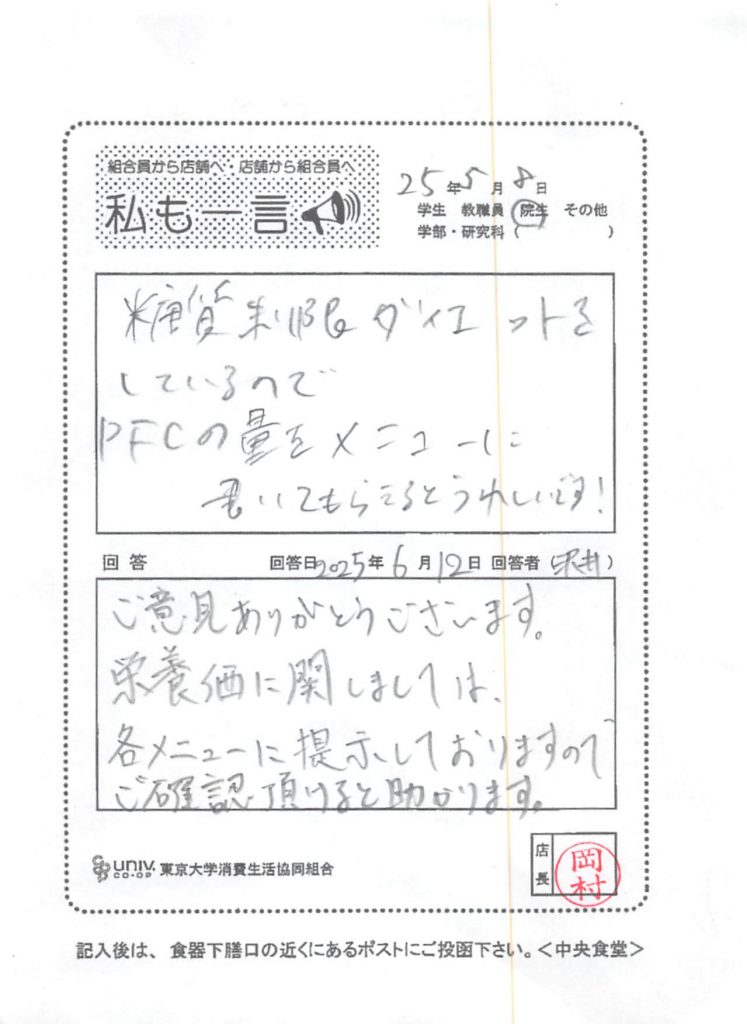 組合員から店舗へ・店舗から組合員へ
私も一言
25年5月8日
学生 教職員 院生 その他
学部・研究科( )
糖質制限ダイエットを
しているので
PFCの量をメニューに
書いてもらえるとうれしいです!
回答 回答日2025年6月12日 回答者(沢井)
ご意見ありがとうございます。
栄養価に関しましては、
各メニューに提示しておりますので
ご確認頂けると助かります。
店長
岡村
UNIV. CO-OP 東京大学消費生活協同組合
記入後は、食器下膳口の近くにあるポストにご投函下さい。<中央食堂>